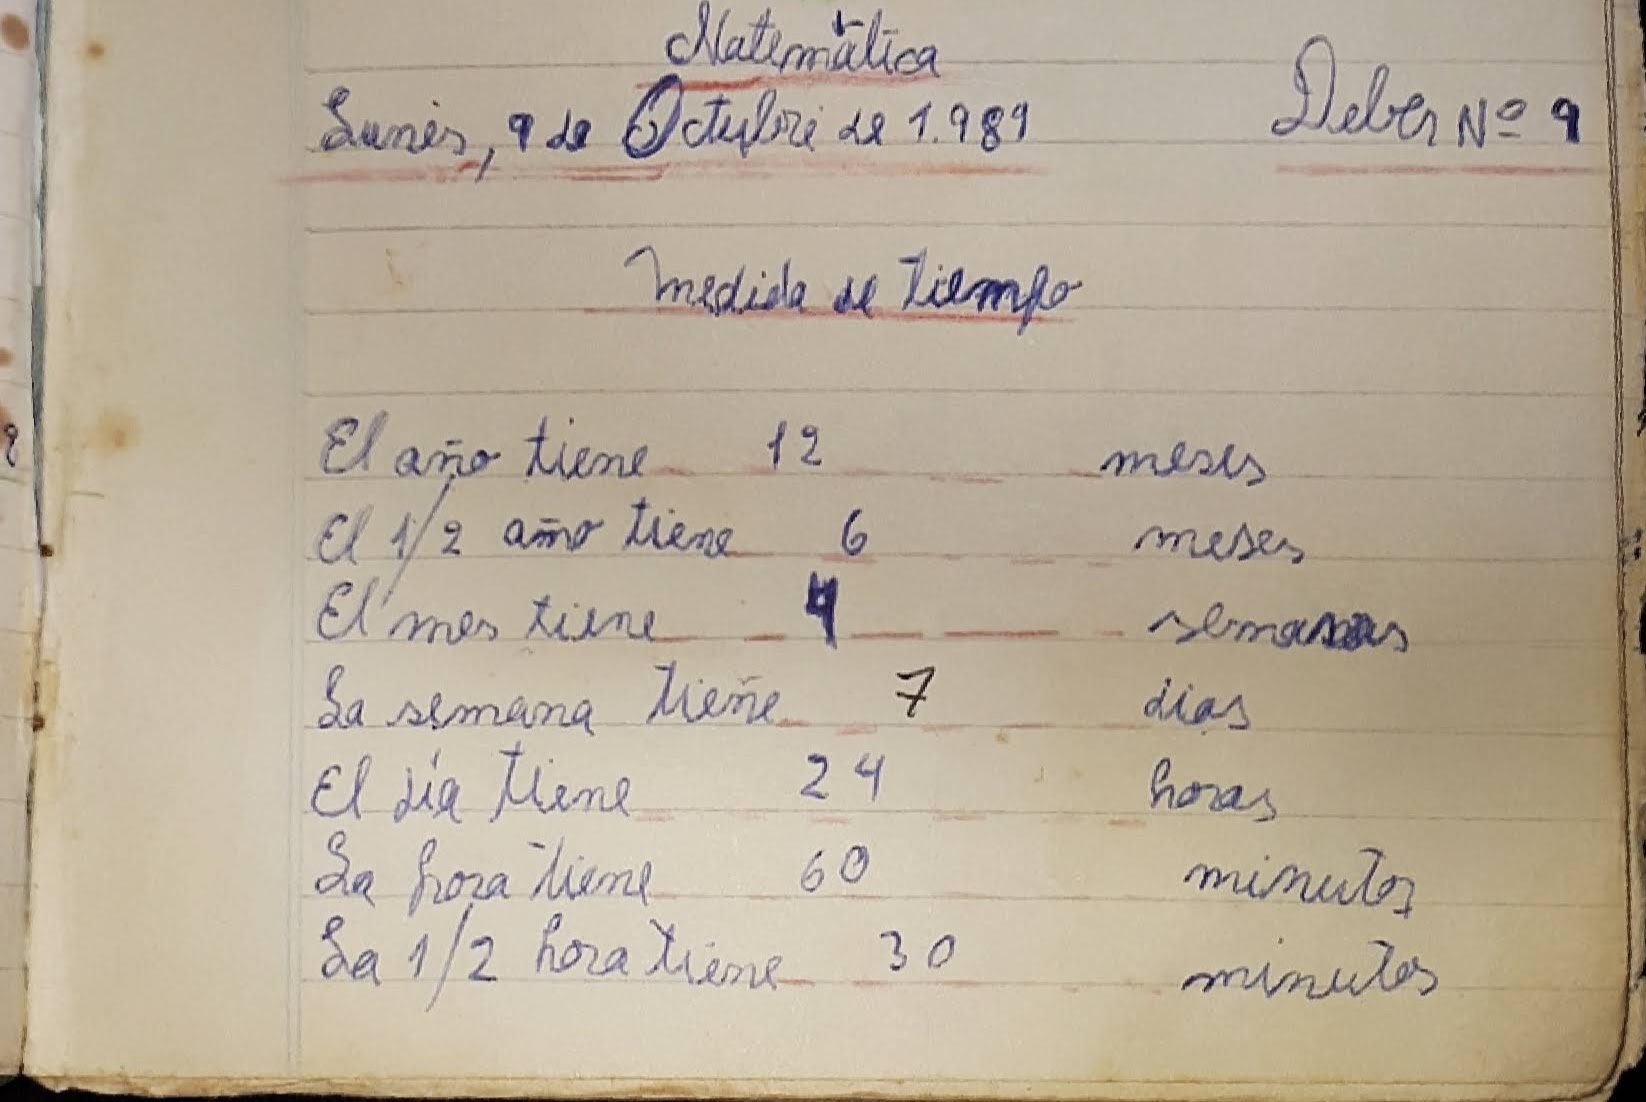 Matemática
Lunes, 9 de Octubre de 1.989 Deber Nº 9
Medida de tiempo
El año tiene 12 meses
El 1/2 año tiene 6 meses
El mes tiene 4 semanas
La semana tiene 7 dias
El día tiene 24 horas
La hora tiene 60 minutos
La 1/2 hora tiene 30 minutos